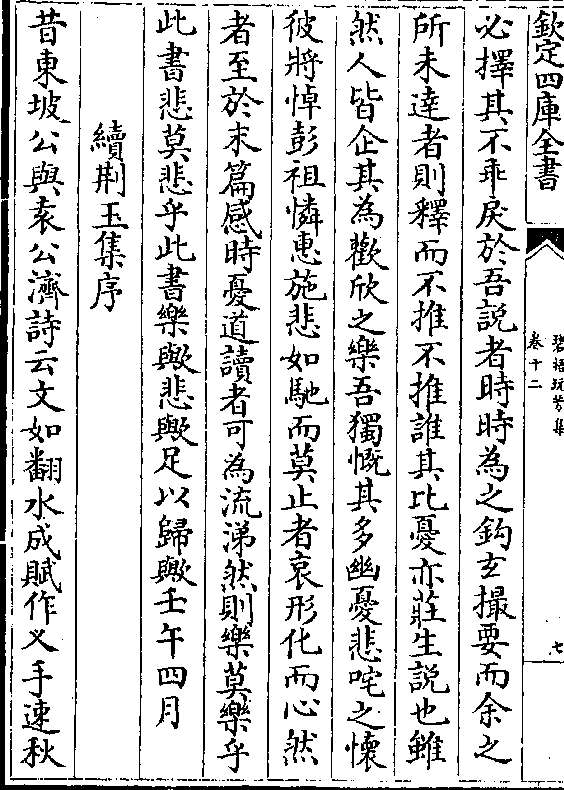 欽定四庫全書
碧梧玩芳集
卷十二
七
必擇其不乖戾於吾説者時時為之鈎玄撮要而余之
所未達者則釋而不推不推誰其比憂亦莊生説也雖
然人皆企其為歡欣之樂吾獨慨其多幽憂悲咤之懷
彼將悼彭祖憐惠施悲如馳而莫止者哀形化而心然
者至於末篇感時憂道讀者可為流涕然則樂莫樂乎
此書悲莫悲乎此書樂歟悲歟足以歸歟壬午四月
續荆玉集序
昔東坡公與袁公濟詩云文如翻水成賦作叉手速秋